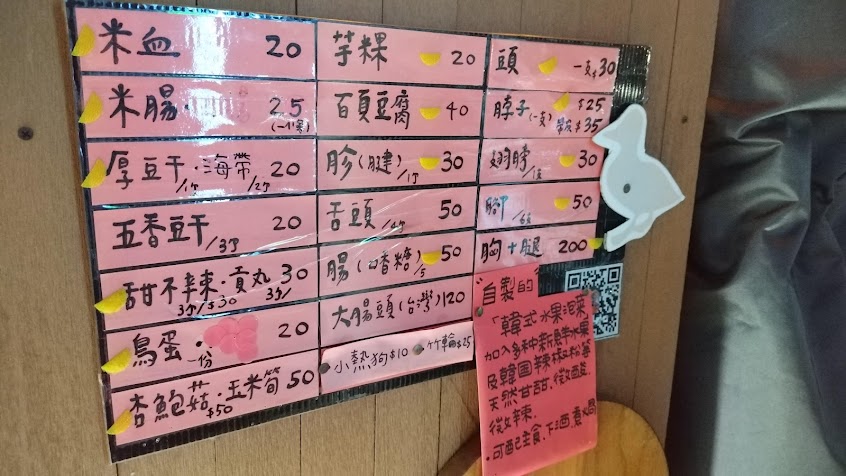 米血 20
米腸 25
(一個)
厚豆干・海帶 20
五香豆干 20
甜不辣・貢丸 30
鳥蛋 一份 20
杏鮑菇・玉米筍 50
$50
芋粿 20
百頁豆腐 40
胗(腱) 30
舌頭 50
腸(嘻糖) 50
大腸頭(台灣) 120
小熱狗$10
竹輪$25
頭 一支$30
脖子(一支) $25
$35
翅膀 30
腳 50
胸+腿 200
"自製的"
「韓式水果泡菜
加入多種新鮮水果
及韓国辣
天然甘甜.微酸.
微辣.
・可配主食.下酒.煮火鍋